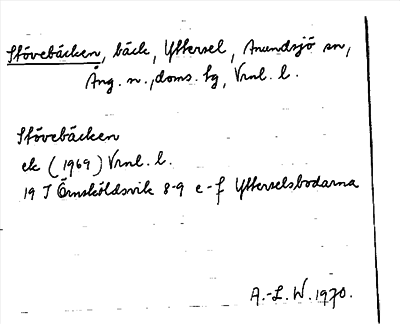 Stövebäcken, bäck, Yttersel, Anundsjö sn,
Ång. n., doms. fg, Vrnl. l.
Stövebäcken
ek (1969) Vrnl. l.
19 J Örnsköldsvik 8-9 e-f Ytterselsbodarna
A.-L. W. 1970.